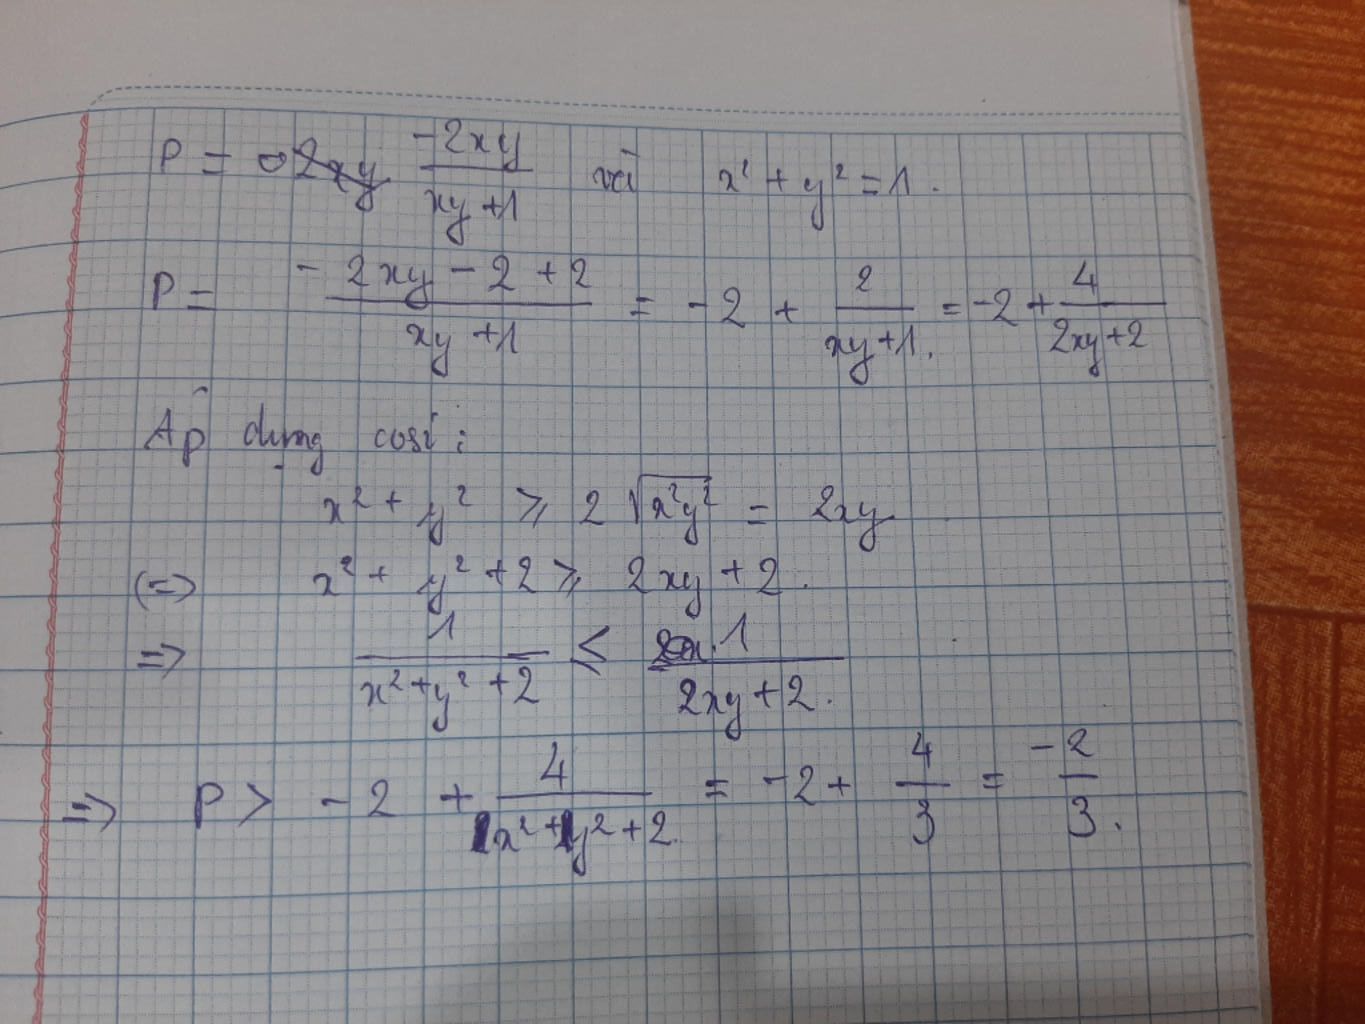 P = -2xy / xy+1 và x² + y² = 1.
P = - 2xy - 2 + 2 / xy+1 = -2 + 2 / xy+1. = -2 + 4 / 2xy+2
Áp dụng cosi :
x² + y² ⩾ 2 √x²y² = 2xy
(=) x² + y² + 2 ⩾ 2xy + 2.
=> 1 / x²+y²+2 ≤ 1 / 2xy+2.
=> P > -2 + 4 / x²+y²+2. = -2 + 4/3 = -2/3.